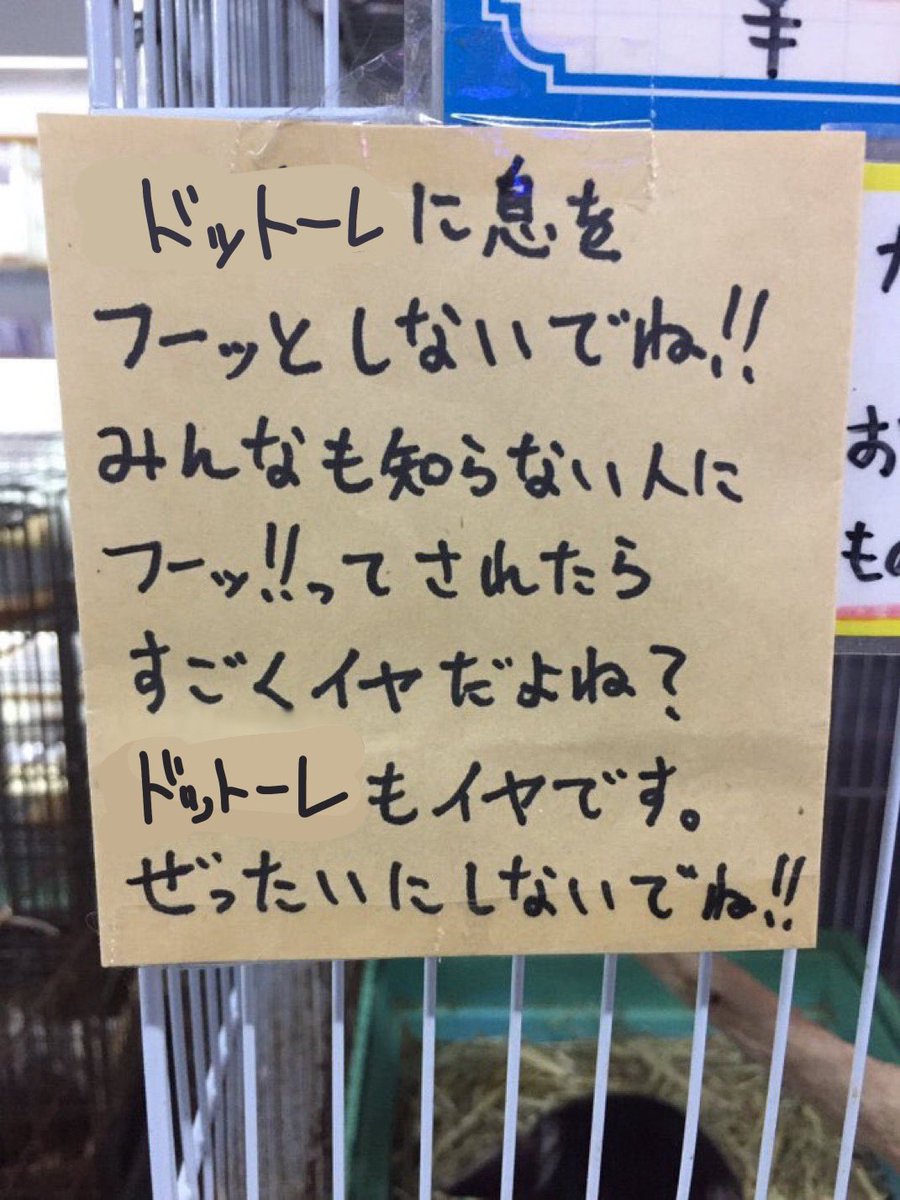 ¥
ドットーレに息を
フーッとしないでね!!
みんなも知らない人に
フーッ!!ってされたら
すごくイヤだよね?
ドットーレもイヤです。
ぜったいにしないでね!!
お
も